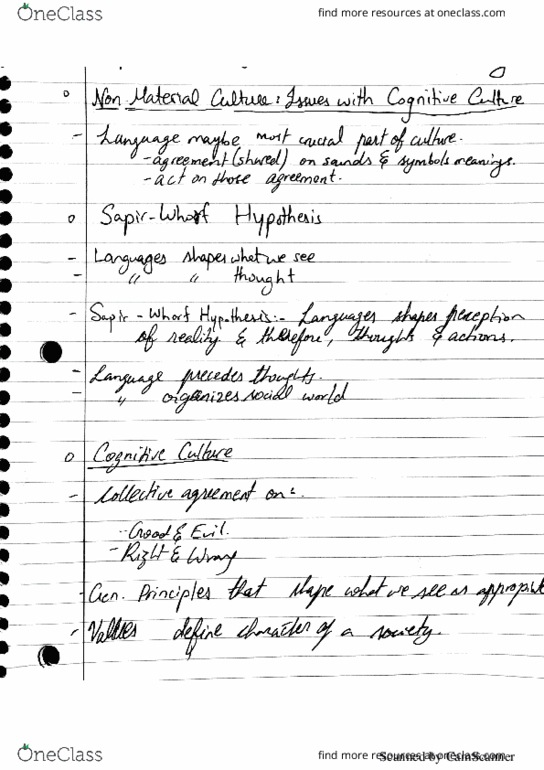 OneClass
find more resources at oneclass.com
Non Material Culture: Issues with Cognitive Culture
- Language maybe most crucial part of culture.
- agreement (shared) on sounds & symbols meanings.
- act on those agreement.
Sapir-Whorf Hypothesis
- Languages shapes what we see
- " " thought
- Sapir-Whorf Hypothesis:- Languages shapes perception
of reality & therefore, thoughts & actions.
- Language precedes thoughts.
- " organizes social world
Cognitive Culture
- Collective agreement on:
- Good & Evil.
- Right & Wrong
- Gen. Principles that shape what we see as
- Values define character of a society.
OneClass
find more resources at oneclass.com
Scanned by CamScanner